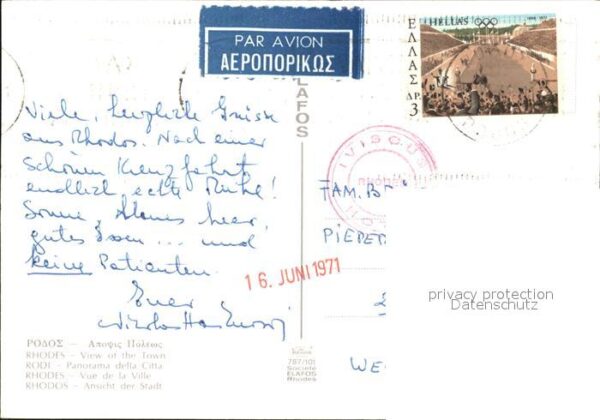 PAR AVION
ΑΕΡΟΠΟΡΙΚΩΣ
HELLAS
1896-1971
ΕΛΛΑΣ
ΔΡ. 3
ELAFOS
Viele, herzliche Grüsse
aus Rhodos. Nach einer
schönen Kreuzfahrt
endlich echte Ruhe!
Sonne, blaues Meer,
gutes Essen ... und
keine Patienten.
Euer
FAM. B
PIEPE
WE
16. JUNI 1971
privacy protection
Datenschutz
ΡΟΔΟΣ — Αποψις Πόλεως
RHODES — View of the Town
RODI — Panorama della Citta
RHODES — Vue de la Ville
RHODOS — Ansicht der Stadt
787/101
Societé
ELAFOS
Rhodes